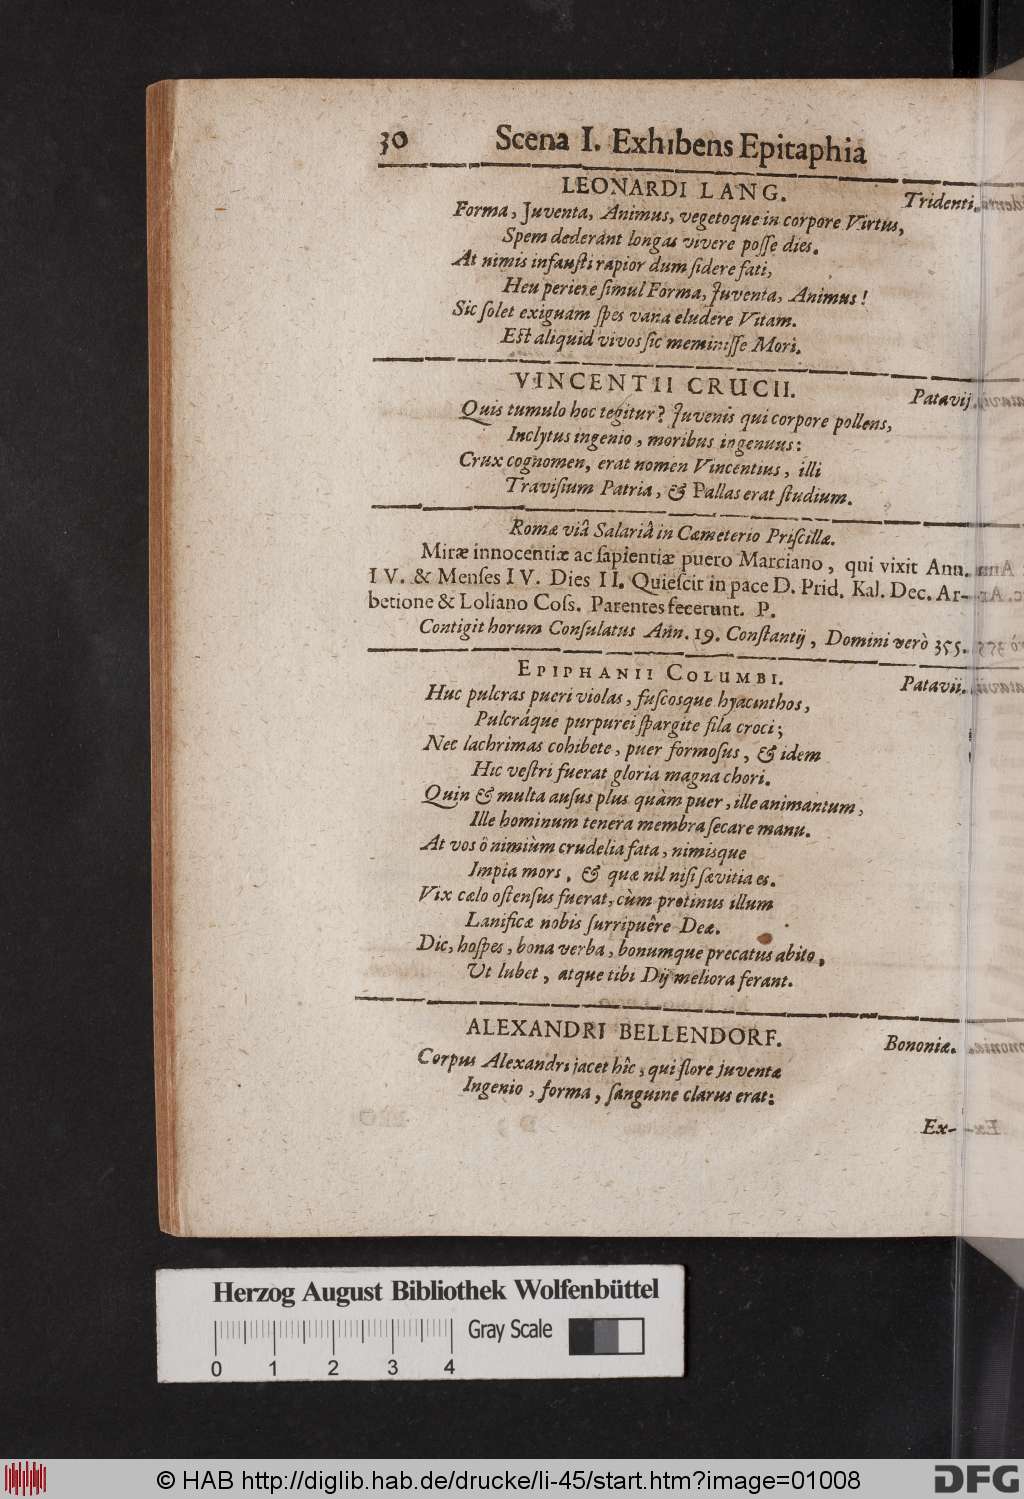 30 Scena I. Exhibens Epitaphia
LEONARDI LANG. Tridenti.
Forma, Juventa, Animus, vegetoque in corpore Virtus,
Spem dederant longas vivere posſe dies.
At nimis infauſti rapior dum ſidere fati,
Heu periere ſimul Forma, Juventa, Animus!
Sic ſolet exiguam ſpes vana eludere Vitam.
Eſt aliquid vivos ſic meminiſſe Mori.
VINCENTII CRUCII. Patavij.
Quis tumulo hoc tegitur? Juvenis qui corpore pollens,
Inclytus ingenio, moribus ingenuus:
Crux cognomen, erat nomen Vincentius, illi
Traviſium Patria, & Pallas erat ſtudium.
Romæ viâ Salariâ in Cæmeterio Priſcillæ.
Miræ innocentiæ ac ſapientiæ puero Marciano, qui vixit Ann.
IV. & Menſes IV. Dies II. Quieſcit in pace D. Prid. Kal. Dec. Ar-
betione & Loliano Coſs. Parentes fecerunt. P.
Contigit horum Conſulatus Ann. 19. Conſtantij, Domini verò 355.
EPIPHANII COLUMBI. Patavii.
Huc pulcras pueri violas, fuſcosque hyacinthos,
Pulcráque purpurei ſpargite fila croci;
Nec lachrimas cohibete, puer formoſus, & idem
Hic veſtri fuerat gloria magna chori.
Quin & multa auſus plus quàm puer, ille animantum,
Ille hominum tenera membra ſecare manu.
At vos ô nimiùm crudelia fata, nimisque
Impia mors, & quæ nil niſi ſævitia es.
Vix cælo oſtenſus fuerat, cùm protinus illum
Lanificæ nobis ſurripuêre Deæ.
Dic, hoſpes, bona verba, bonumque precatus abito,
Ut lubet, atque tibi Dij meliora ferant.
ALEXANDRI BELLENDORF. Bononiæ.
Corpus Alexandri jacet hîc, qui flore juventæ
Ingenio, forma, ſanguine clarus erat:
Ex-
Herzog August Bibliothek Wolfenbüttel
Gray Scale
0 1 2 3 4
© HAB http://diglib.hab.de/drucke/li-45/start.htm?image=01008
DFG